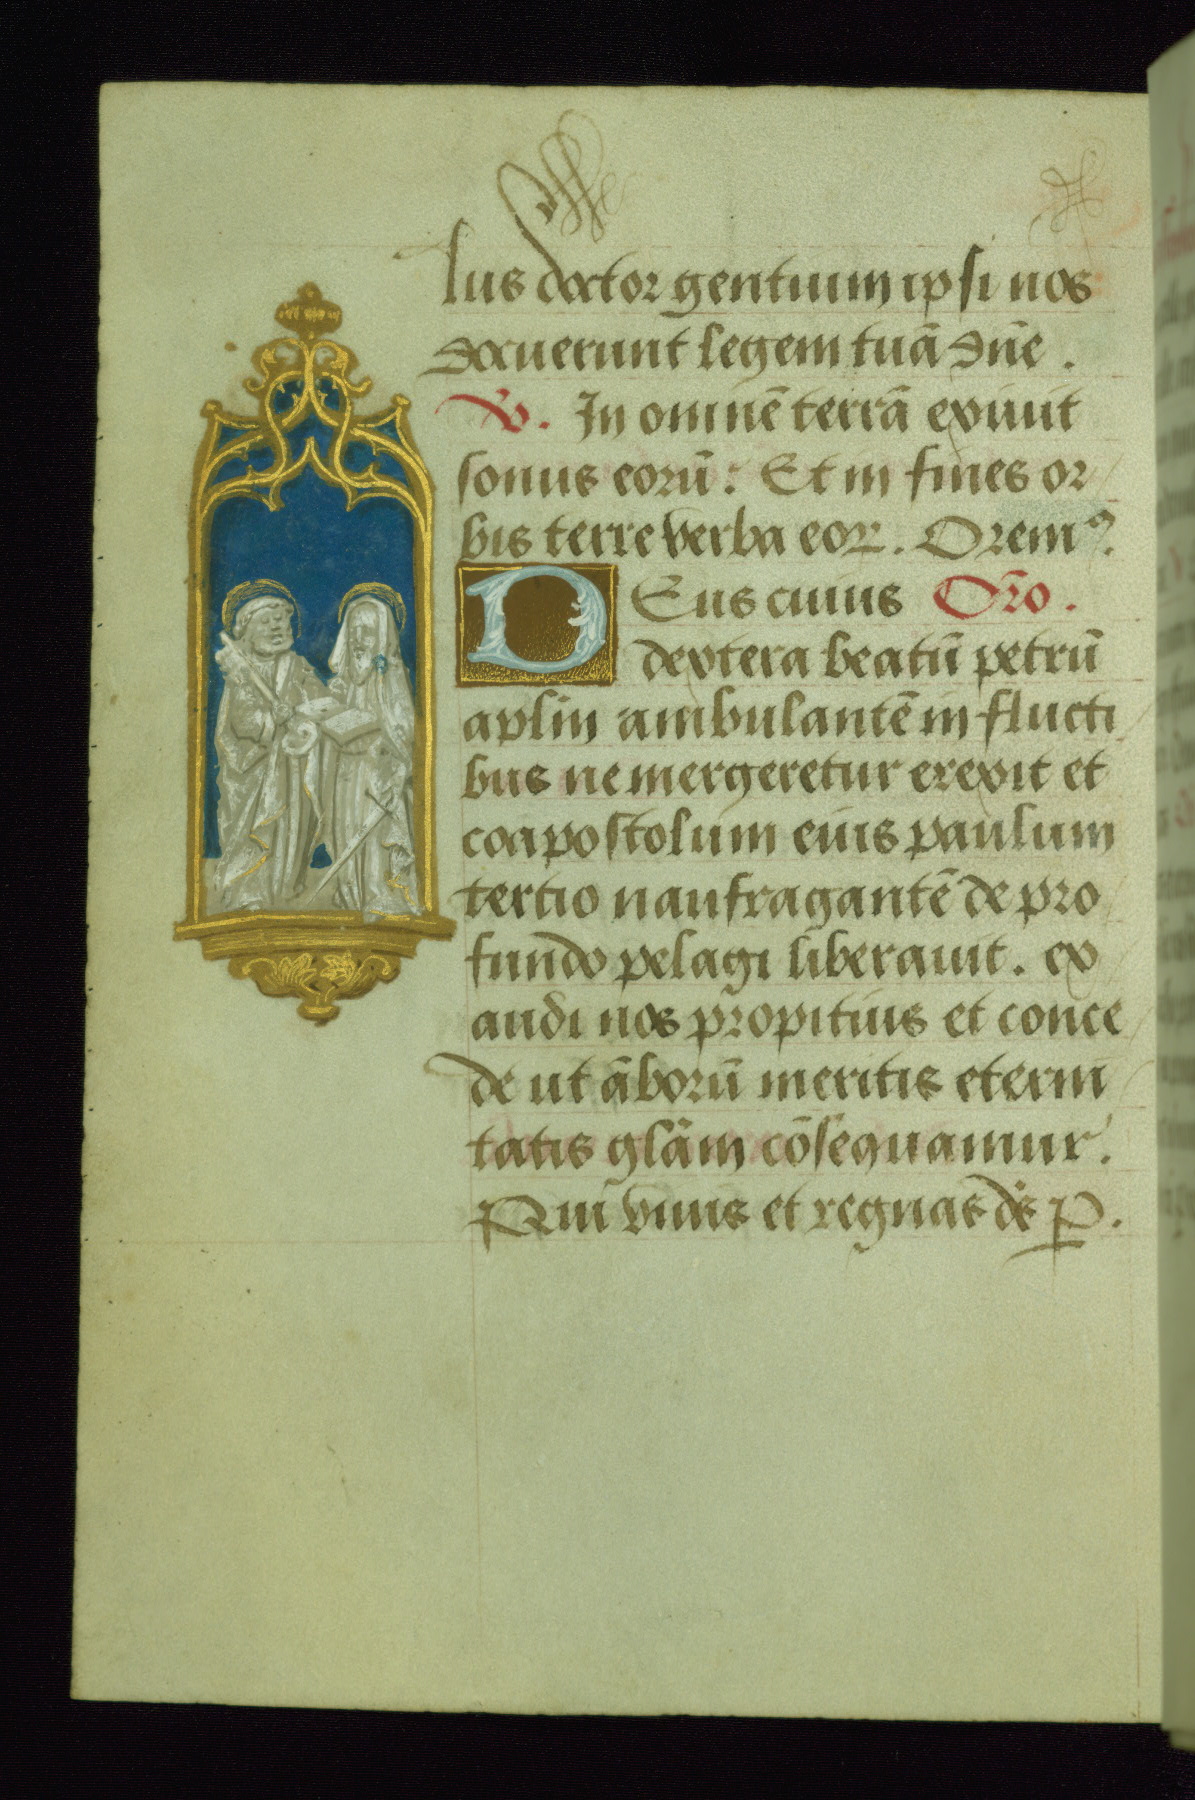 lus doctor gentium ipsi nos
docuerunt legem tuā dn̄e.
V. In omnē terrā exiuit
sonus eorū: Et in fines or
bis terre verba eoꝝ. Oremꝰ.
DEus cuius Oro.
dextera beatū petrū
aplm ambulantē in flucti
bus ne mergeretur erexit et
coapostolum eius paulum
tertio naufragantē de pro
fundo pelagi liberauit. ex
audi nos propitius et conce
de ut āborū meritis eterni
tatis glām cōsequamur.
Qui viuis et regnas ds̄ P.